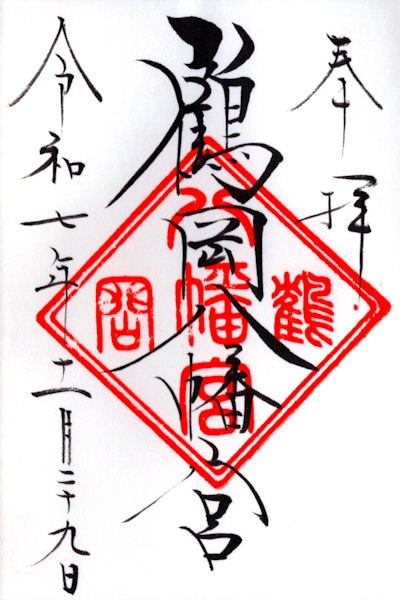 奉拝
鶴岡八幡宮
鶴
八幡宮
岡
令和七年十一月二十九日